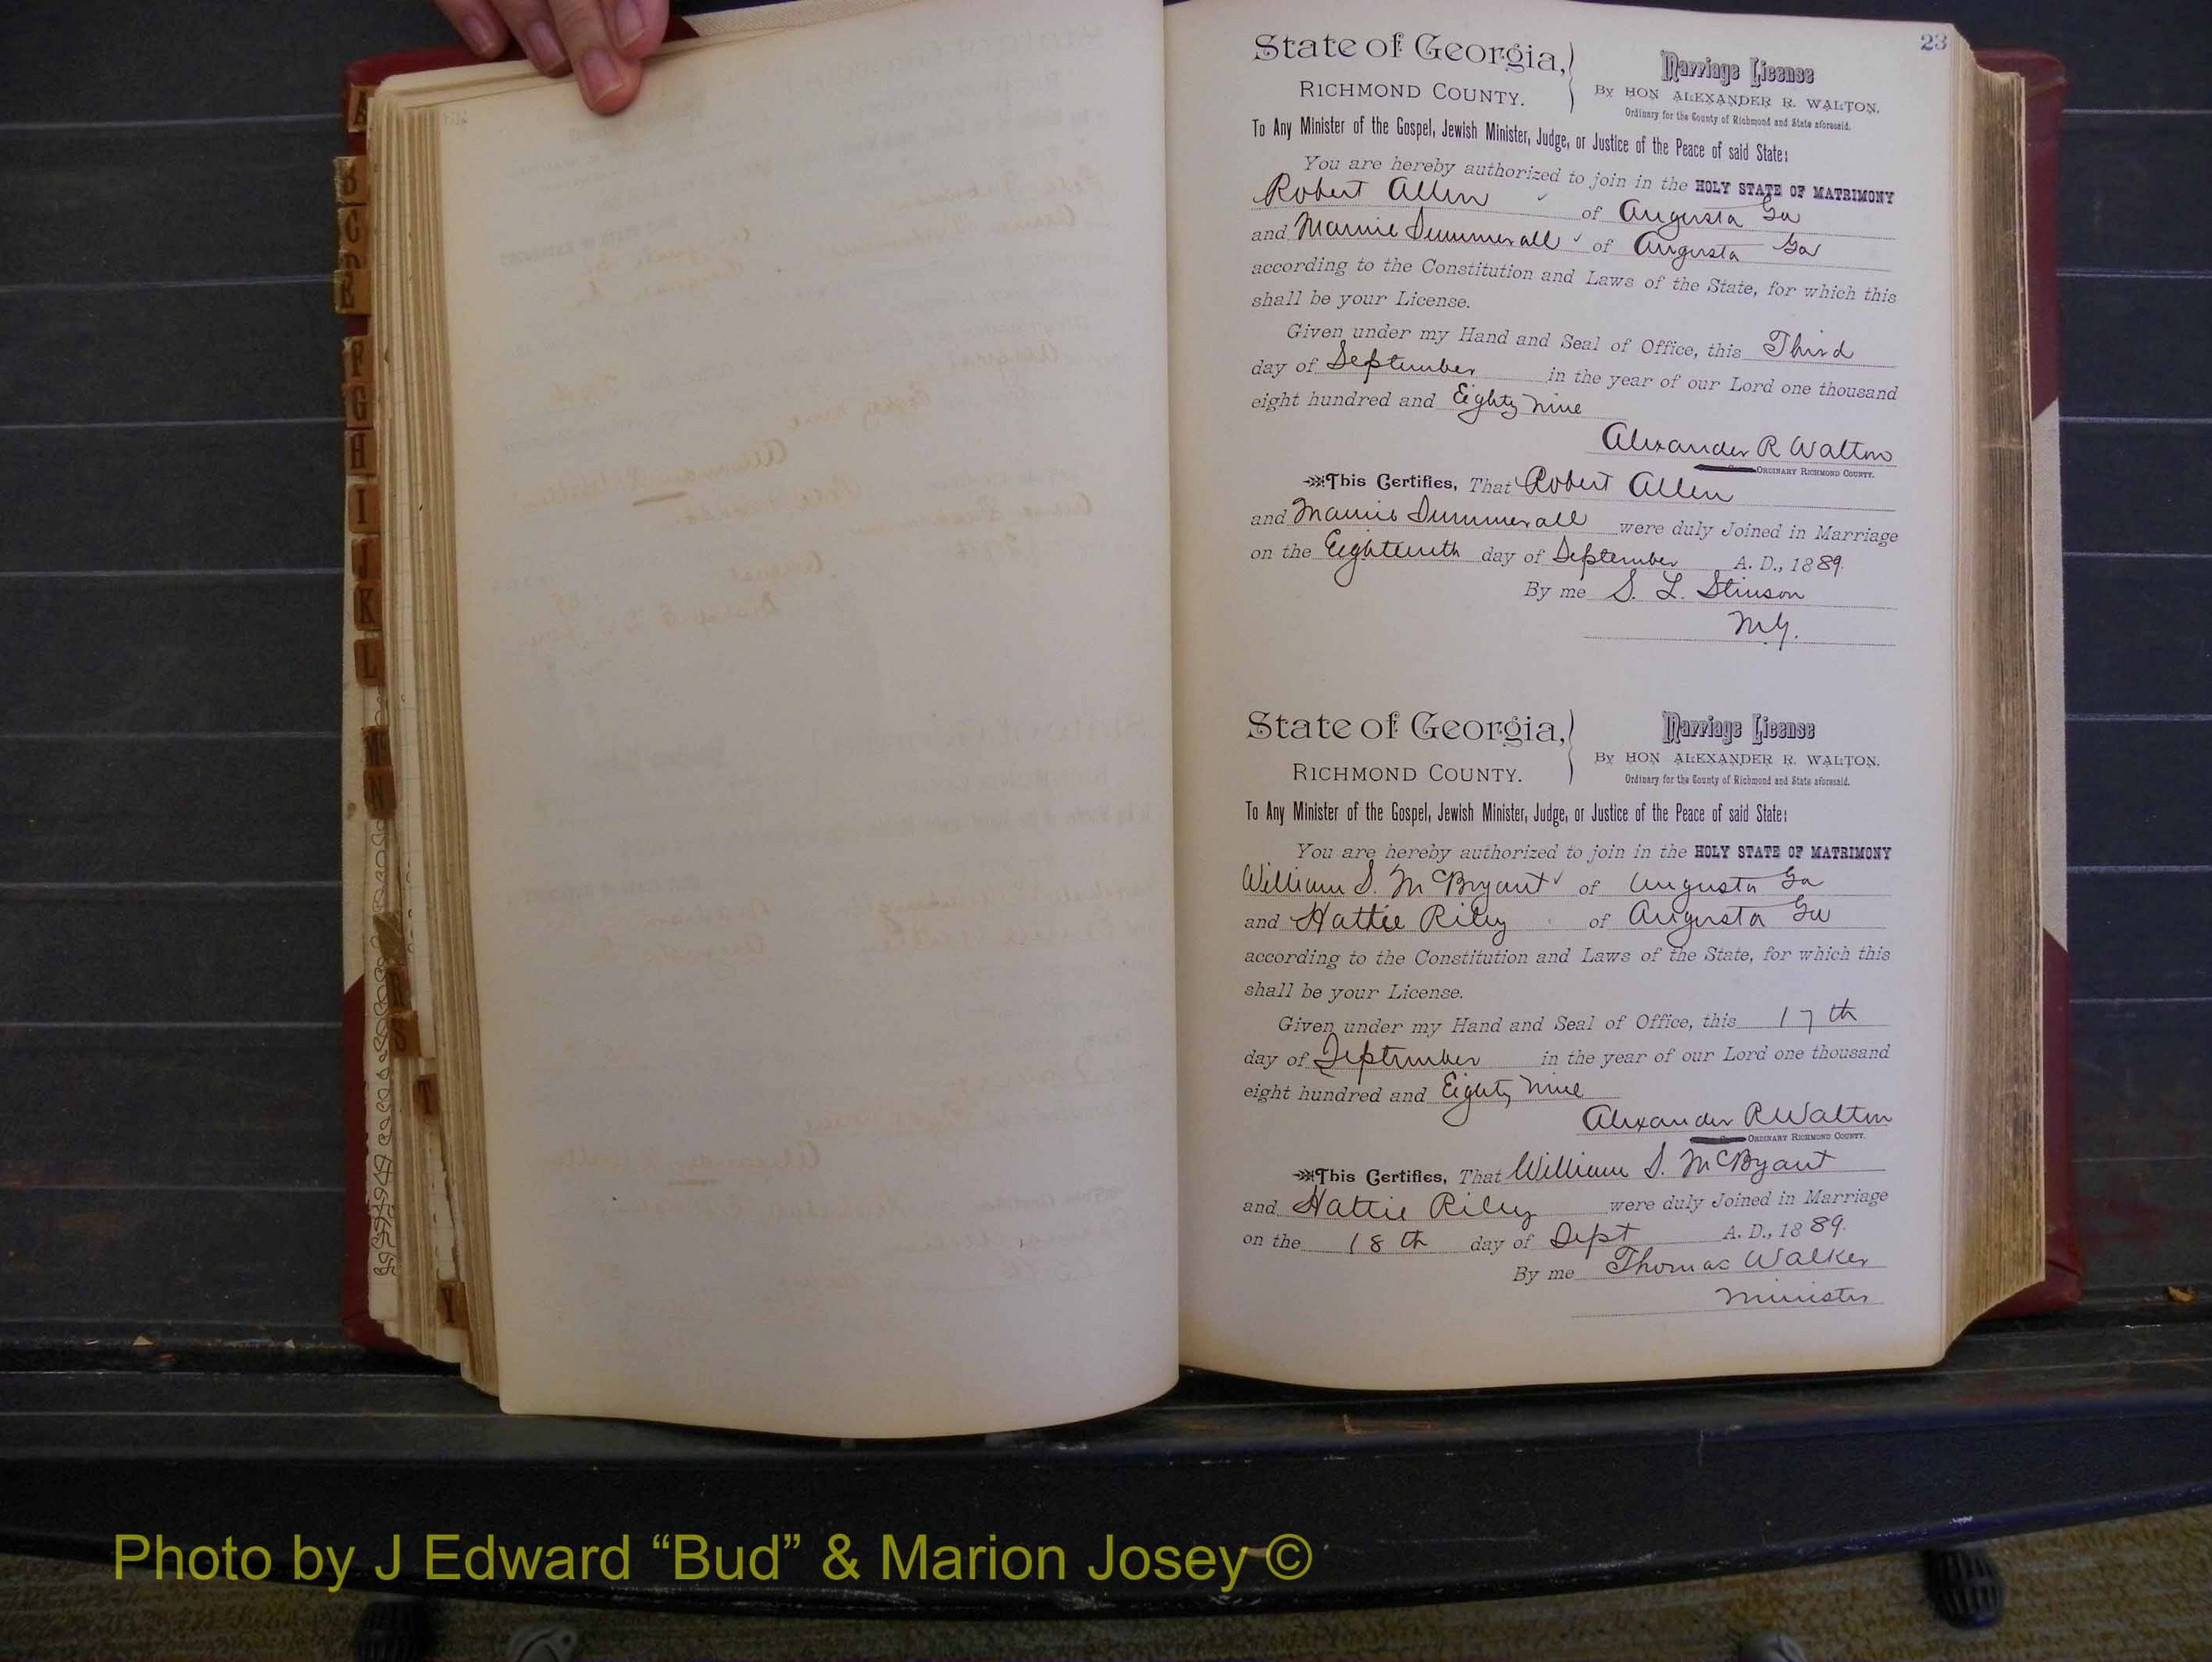 23
State of Georgia,
RICHMOND COUNTY.
Marriage License
By HON ALEXANDER R. WALTON,
Ordinary for the County of Richmond and State aforesaid.
To Any Minister of the Gospel, Jewish Minister, Judge, or Justice of the Peace of said State:
You are hereby authorized to join in the HOLY STATE OF MATRIMONY
Robert Allen of Augusta Ga
and Mamie Summerall of Augusta Ga
according to the Constitution and Laws of the State, for which this
shall be your License.
Given under my Hand and Seal of Office, this Third
day of September in the year of our Lord one thousand
eight hundred and Eighty Nine
Alexander R Walton
ORDINARY RICHMOND COUNTY.
This Certifies, That Robert Allen
and Mamie Summerall were duly Joined in Marriage
on the Eighteenth day of September A. D., 1889.
By me S. L. Stinson
M.G.
State of Georgia,
RICHMOND COUNTY.
Marriage License
By HON ALEXANDER R. WALTON,
Ordinary for the County of Richmond and State aforesaid.
To Any Minister of the Gospel, Jewish Minister, Judge, or Justice of the Peace of said State:
You are hereby authorized to join in the HOLY STATE OF MATRIMONY
William S. McBryant of Augusta Ga
and Hattie Riley of Augusta Ga
according to the Constitution and Laws of the State, for which this
shall be your License.
Given under my Hand and Seal of Office, this 17th
day of September in the year of our Lord one thousand
eight hundred and Eighty Nine
Alexander R Walton
ORDINARY RICHMOND COUNTY.
This Certifies, That William S. McByant
and Hattie Riley were duly Joined in Marriage
on the 18th day of Sept A. D., 1889.
By me Thomas Walker
Minister
A
B
C
D
E
F
G
H
I
J
K
L
M
N
R
S
T
Y
Photo by J Edward “Bud” & Marion Josey ©